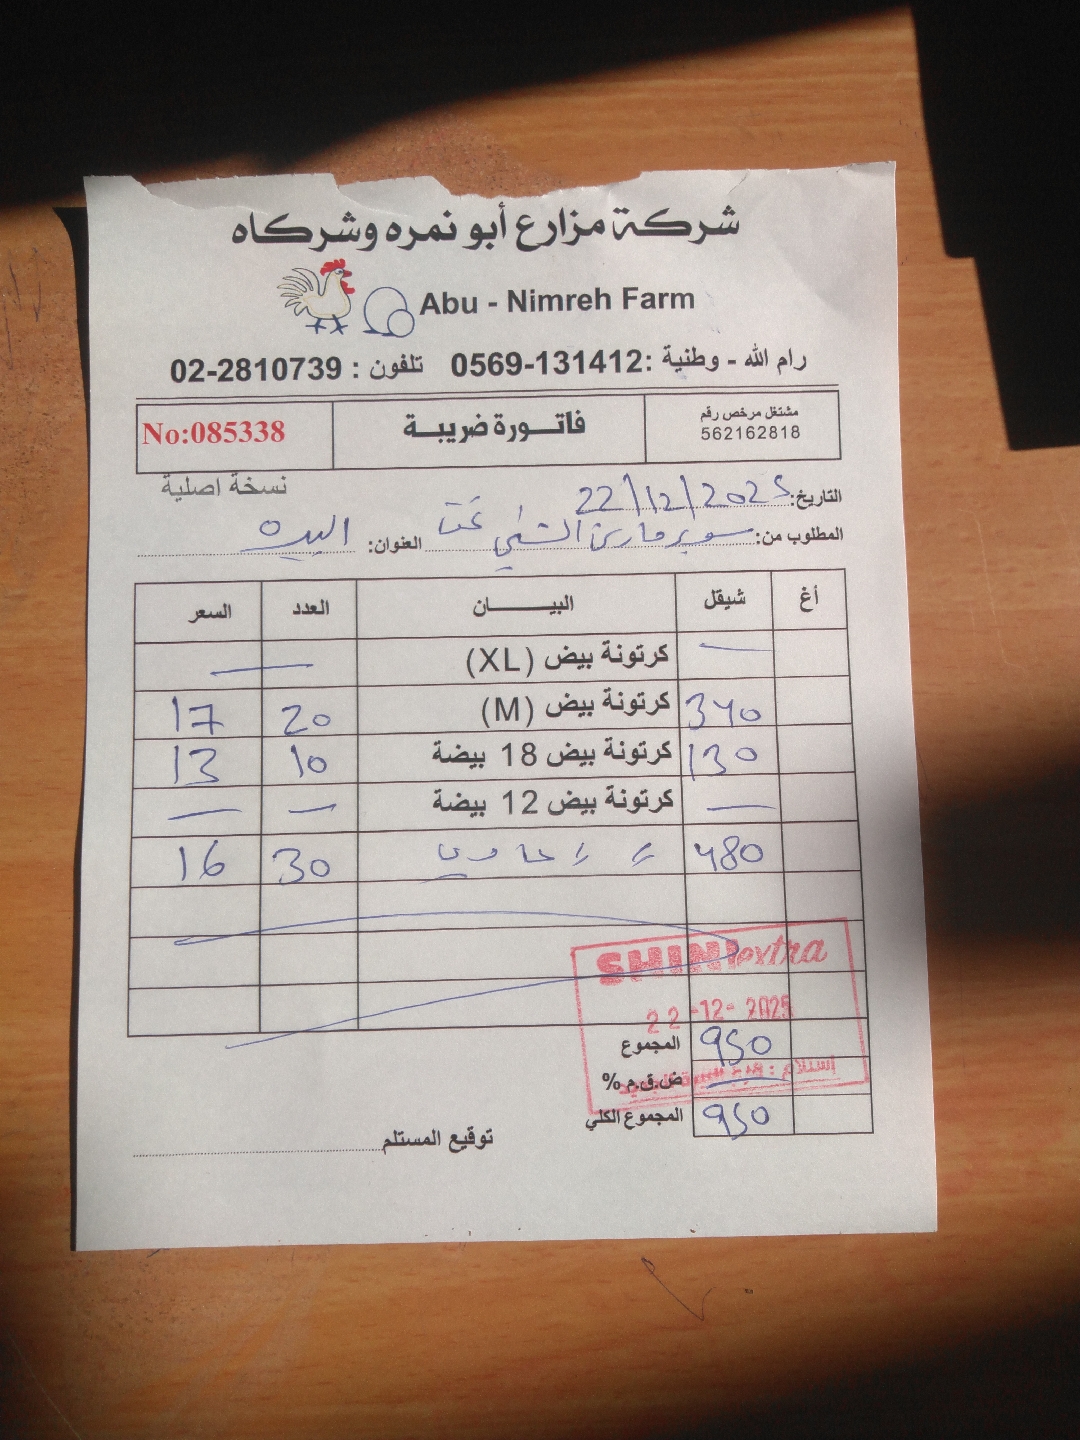 شركة مزارع أبو نمره وشركاه
Abu - Nimreh Farm
رام الله - وطنية :0569-131412 تلفون : 02-2810739
مشتغل مرخص رقم
562162818
فاتـورة ضريبـة
No:085338
نسخة اصلية
التاريخ: 22/12/2025
المطلوب من: سوبر ماركت الشني العنوان: البيره
أغ شيقل البيـــــان العدد السعر
كرتونة بيض (XL) — —
340 كرتونة بيض (M) 20 17
130 كرتونة بيض 18 بيضة 10 13
— كرتونة بيض 12 بيضة — —
480 // // عادي 30 16
SHINI extra
22-12-2025
المجموع 950
ض.ق.م %
استلام :
المجموع الكلي 950
توقيع المستلم